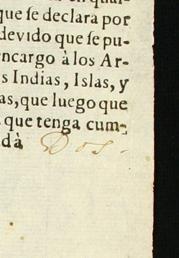 que ſe declara por
devido que ſe pu-
encargo à los Ar-
s Indias, Islas, y
as, que luego que
que tenga cum-
dà Dos.